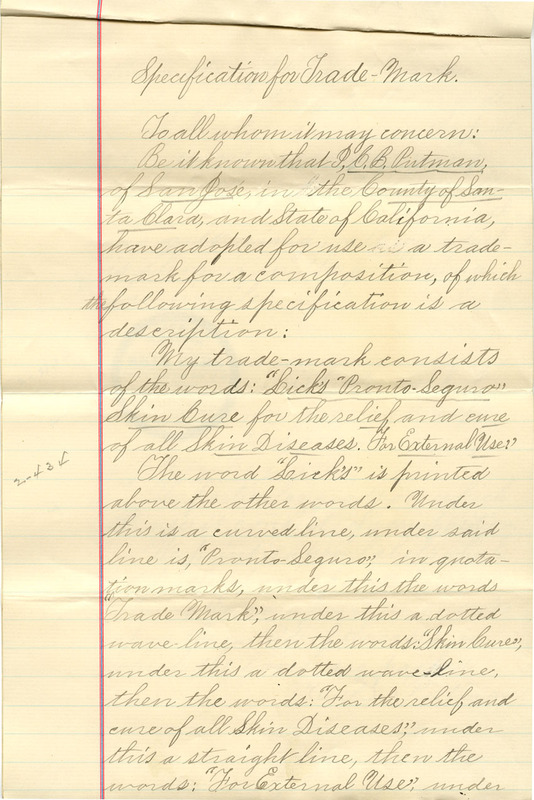 Specification for Trade-Mark.
To all whom it may concern:
Be it known that I, E. B. Putman,
of San José, in the County of San-
ta Clara, and State of California,
have adopted for use as a trade-
mark for a composition, of which
the following specification is a
description:
My trade-mark consists
of the words: "Lick's "Pronto-Seguro"
Skin Cure for the relief and cure
of all Skin Diseases. For External Use."
2-434
The word "Lick's" is printed
above the other words. Under
this is a curved line, under said
line is, "Pronto-Seguro", in quota-
tion marks, under this the words
"Trade Mark", under this a dotted
wave line, then the words: "Skin Cure",
under this a dotted wave-line,
then the words: "For the relief and
cure of all Skin Diseases", under
this a straight line, then the
words: "For External Use", under